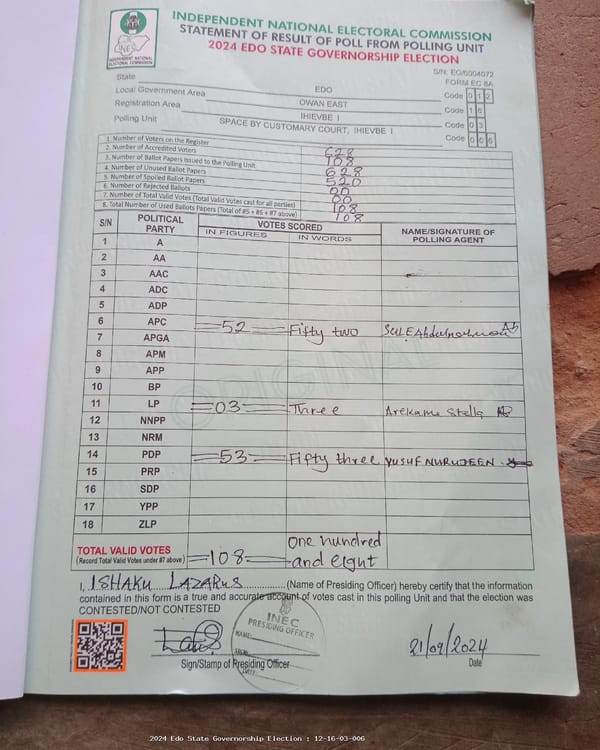 INDEPENDENT NATIONAL ELECTORAL COMMISSION
STATEMENT OF RESULT OF POLL FROM POLLING UNIT
2024 EDO STATE GOVERNORSHIP ELECTION
INEC
INDEPENDENT NATIONAL ELECTORAL COMMISSION
S/N: EG/0004072
FORM EC 8A
State EDO Code 0 1 2
Local Government Area OWAN EAST Code 1 6
Registration Area IHIEVBE I Code 0 3
Polling Unit SPACE BY CUSTOMARY COURT, IHIEVBE I Code 0 0 6
1. Number of Voters on the Register 628
2. Number of Accredited Voters 108
3. Number of Ballot Papers Issued to the Polling Unit 628
4. Number of Unused Ballot Papers 520
5. Number of Spoiled Ballot Papers 00
6. Number of Rejected Ballots 00
7. Number of Total Valid Votes (Total Valid Votes cast for all parties) 108
8. Total Number of Used Ballots Papers (Total of #5 + #6 + #7 above) 108
S/N POLITICAL PARTY VOTES SCORED NAME/SIGNATURE OF POLLING AGENT
IN FIGURES IN WORDS
1 A
2 AA
3 AAC
4 ADC
5 ADP
6 APC 52 Fifty two
7 APGA
8 APM
9 APP
10 BP
11 LP 03 Three Arekame Stella
12 NNPP
13 NRM
14 PDP 53 Fifty three YUSUF NURUDEEN
15 PRP
16 SDP
17 YPP
18 ZLP
ORIGINAL
TOTAL VALID VOTES 108 One hundred and eight
(Record Total Valid Votes under #7 above)
I, ISHAKU LAZARUS (Name of Presiding Officer) hereby certify that the information
contained in this form is a true and accurate account of votes cast in this polling Unit and that the election was
CONTESTED/NOT CONTESTED
INEC
PRESIDING OFFICER
NAME:
SIGN:
DATE:
21/09/2024
Sign/Stamp of Presiding Officer Date
2024 Edo State Governorship Election : 12-16-03-006